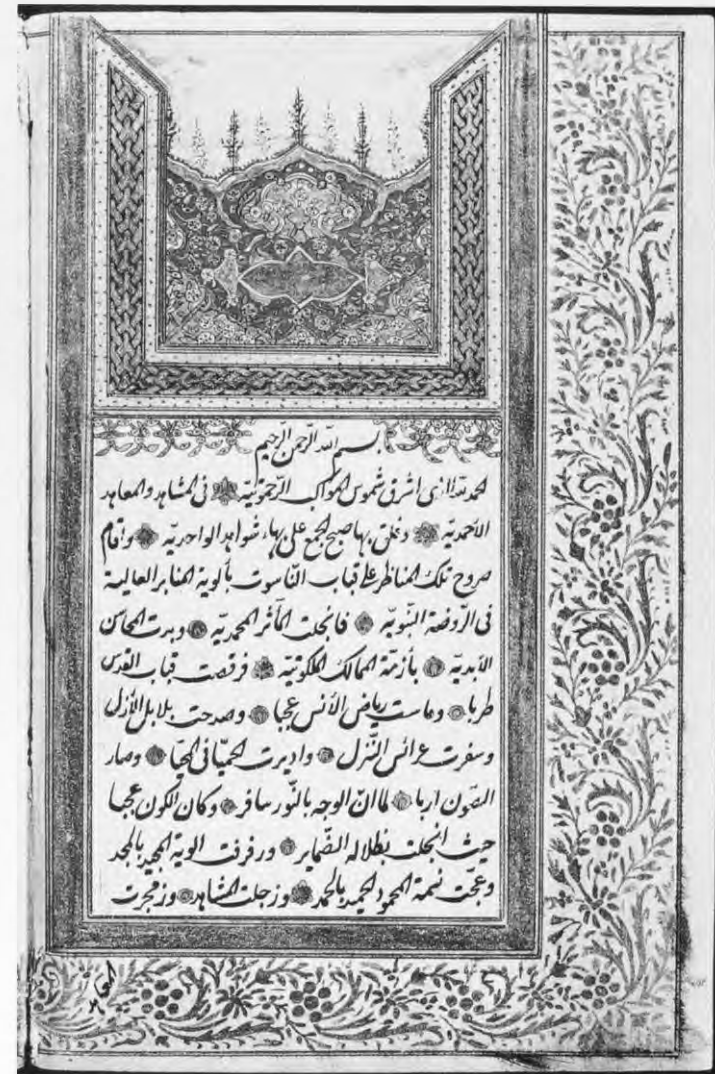 بسم الله الرحمن الرحيم
الحمد لله الذى اشرق شموس المواكب الرحموتيه فى المشاهد والمعاهد
الأحمديه بها صبح الجمع على بهاء شواهد الواحديه واقام
صروح تلك المناظر على قباب الناسوت بألوية المنابر العالية
فى الروضة النبويه فانجلت المآثر المحمديه وبدت المحاسن
الابديه بأزمة الممالك الملكوتيه فرقصت قباب القدس
طربا وماست رياض الأنس عجبا وصدحت بلابل الأزل
وسفرت عرائس النزل واديرت الحميا فى الحيا وصار
الصون اربا لما ان الوجه بالنور سافر وكان الكون عجبا
حيث انجلت بظلاله الضماير ورفرفت الوية المجيد بالمجد
وعجت نسمة المحمود الحميد بالحمد وزجلت المشاهد وزمجرت
المعاهد